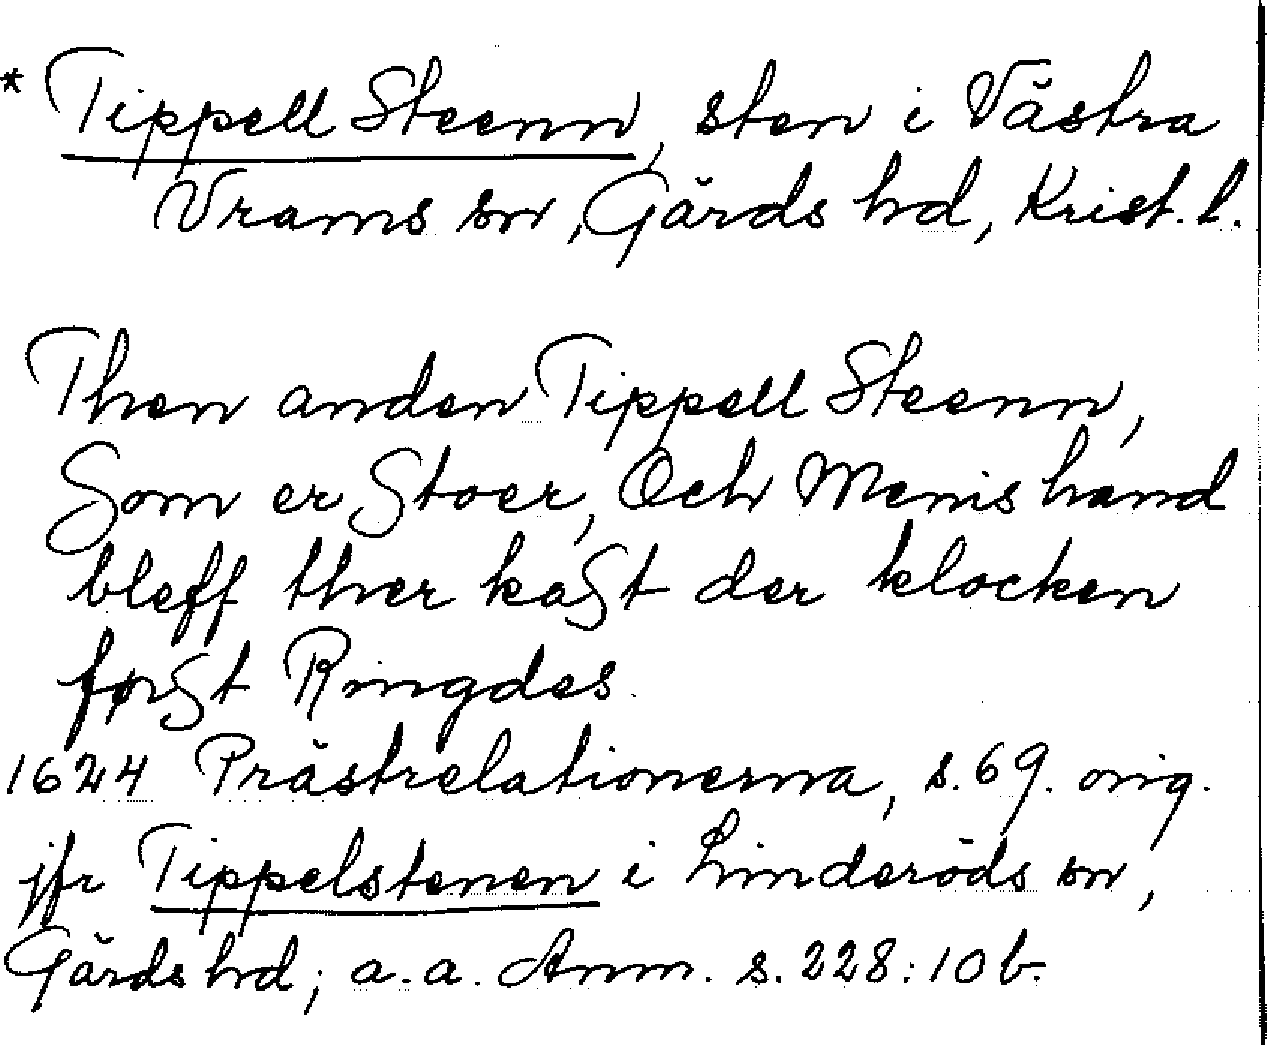 * Tippell Steenn, sten i Västra
Vrams sn, Gärds hd, Krist. l.
Then anden Tippell Steenn,
Som er Stoer, Och Menishand
bleff ther kaSt der klocken
førSt Ringdes.
1624 Prästrelationerna, s. 69. orig.
jfr Tippelstenen i Linderöds sn,
Gärds hd; a.a. Anm. s. 228:10 b.